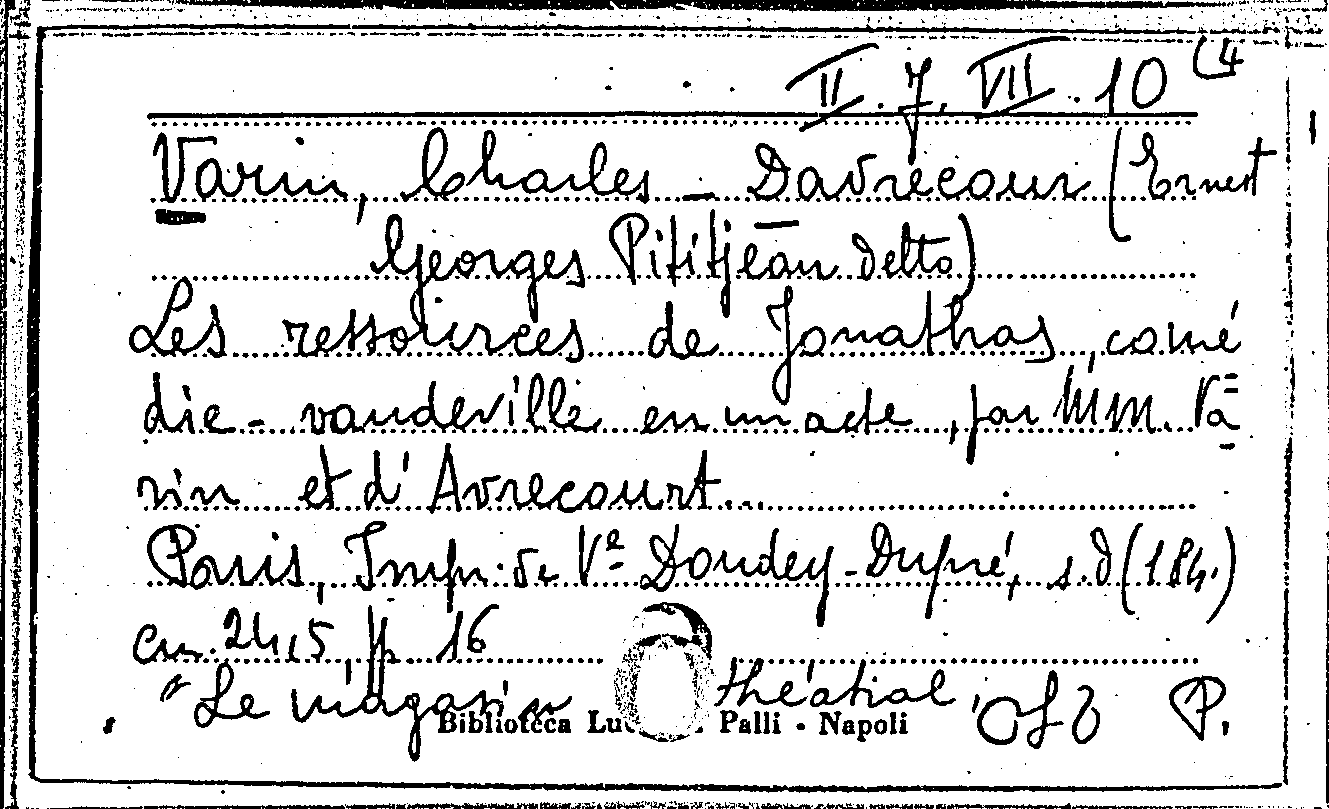 II. 7. VII. 10 (4
Varin, Charles - Davrecour (Ernest
Georges Pititjean detto)
Les ressources de Jonathas, comé
die - vaudeville en un acte, par MM. Va
rin et d'Avrecourt...
Paris, Impr. de Vᵉ Dondey-Dupré, s.d (184.)
cm. 24,5, pp. 16
"Le magasin théatral,
Biblioteca Palli - Napoli
P.